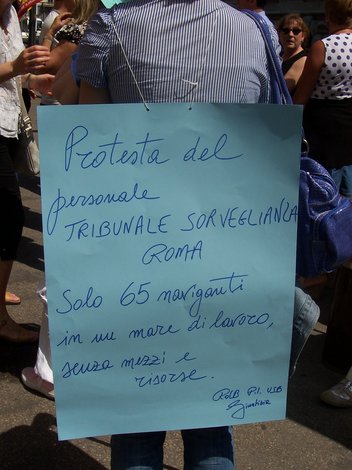 Protesta del
personale
TRIBUNALE SORVEGLIANZA
ROMA
Solo 65 naviganti
in un mare di lavoro,
senza mezzi e
risorse.
RdB P.I. USB
Giustizia